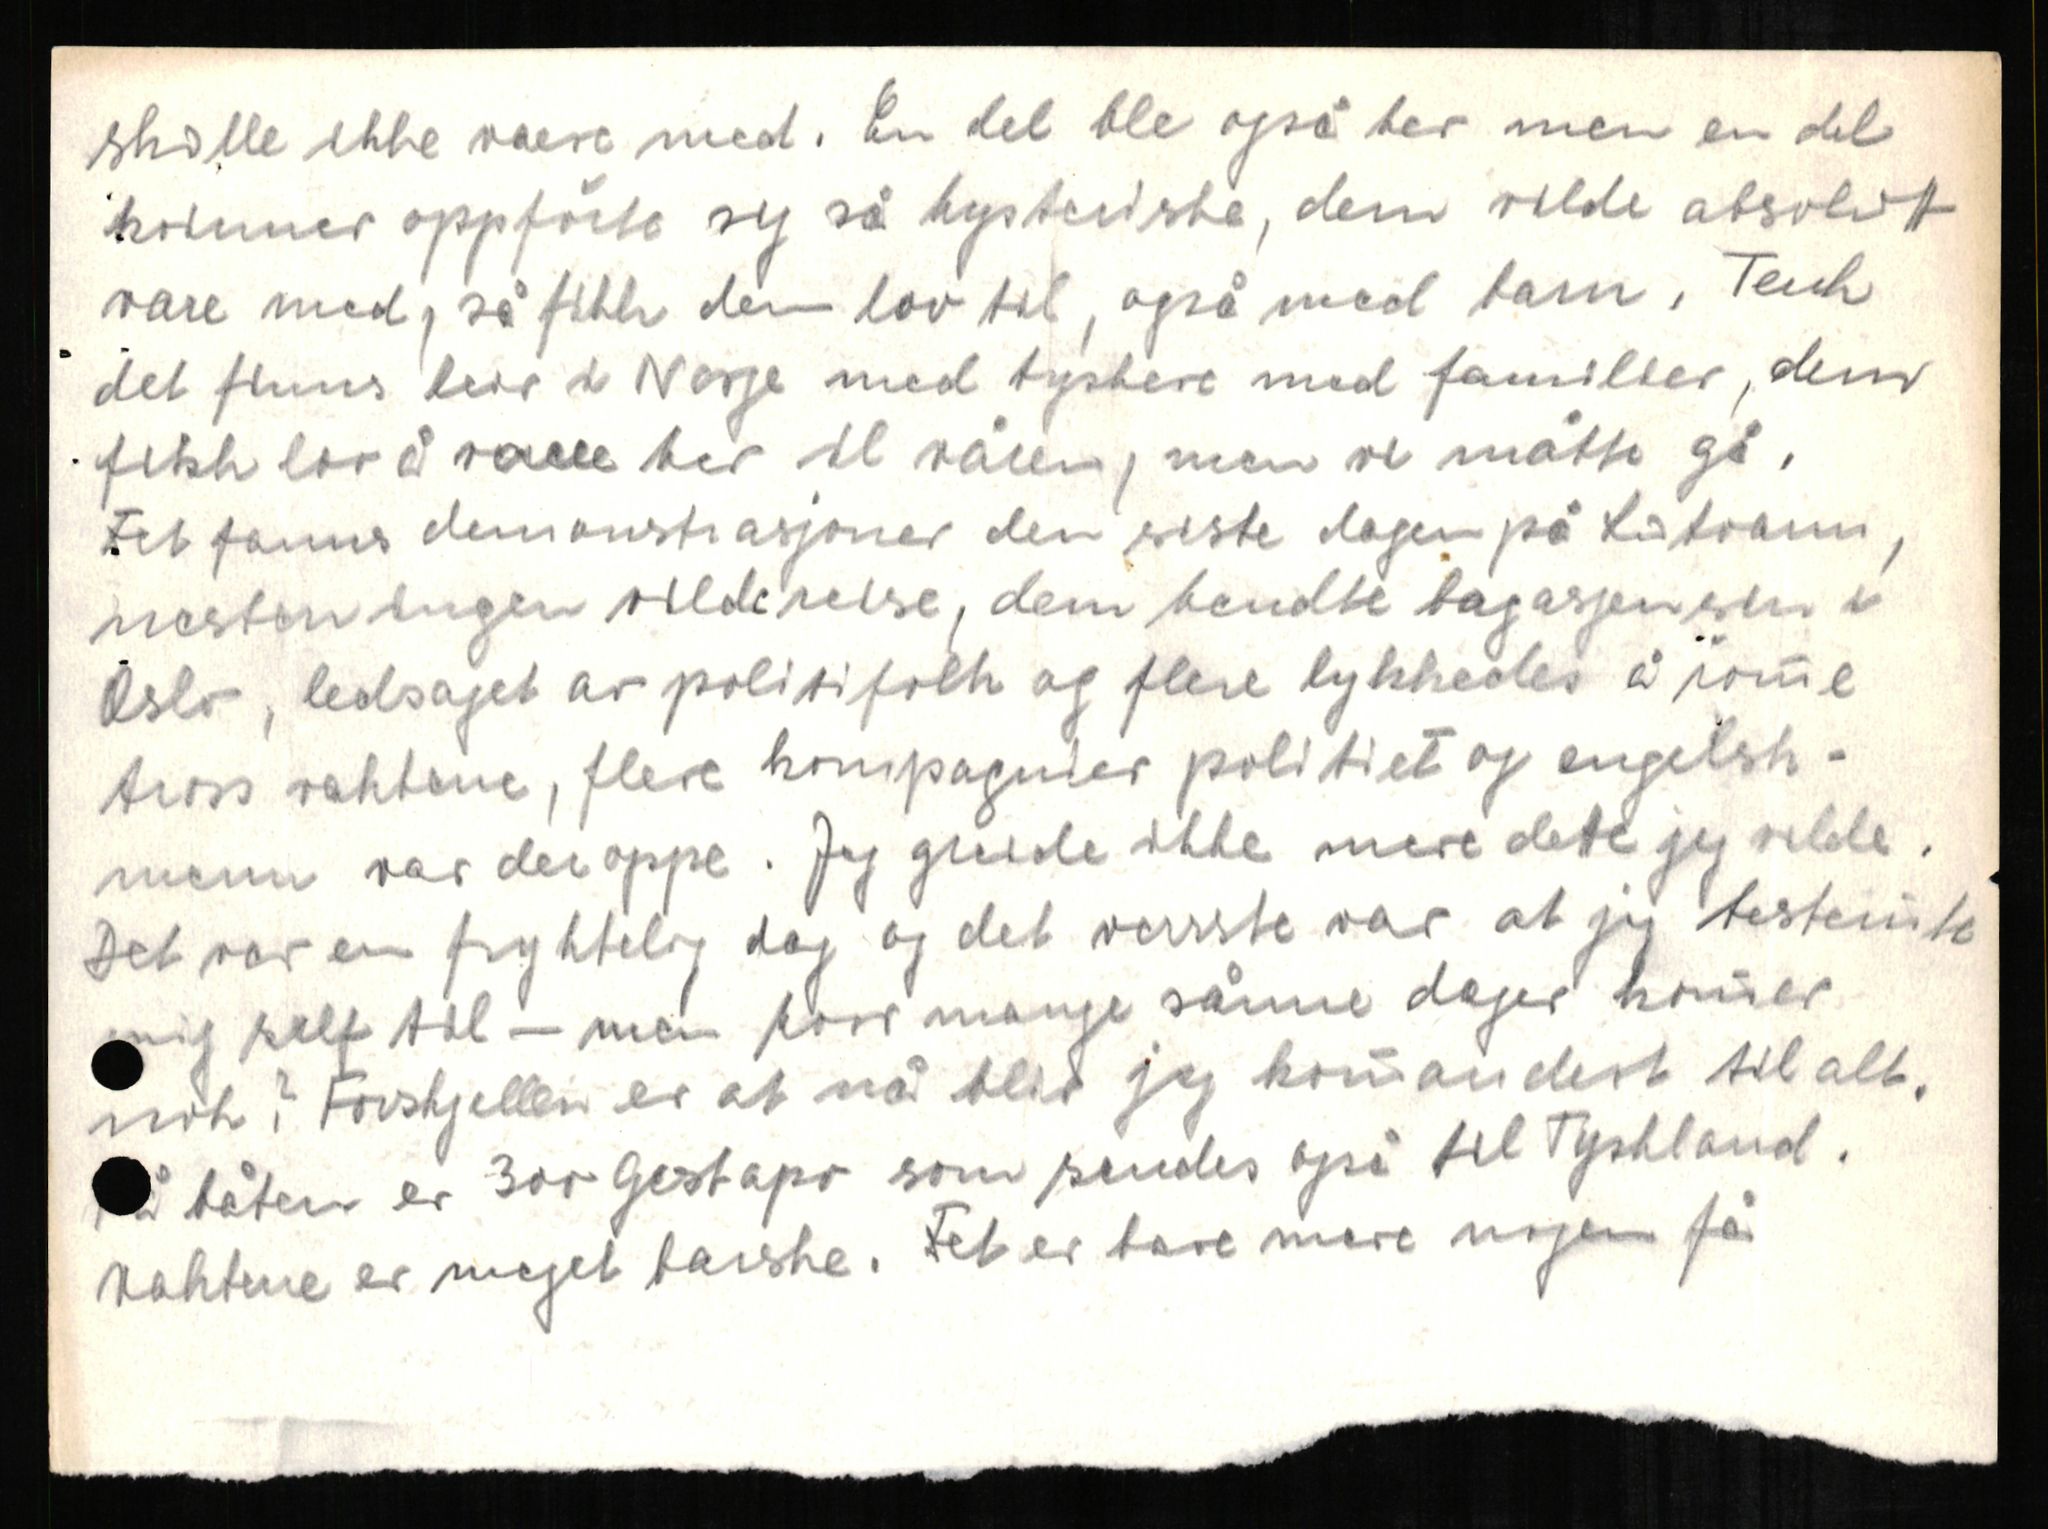 skulle ikke vaere med. En del ble også her men en del
kvinner oppförte sig så hysteriske, dem vilde absolutt
vare med, så fikk dem lov til, også med barn. Tenk
det finns leir i Norge med tyskere med familier, dem
fikk lov å vaere her til våren, men vi måtte gå.
Det fanns demonstrasjoner den siste dagen på Lutvann,
nesten ingen vilde reise, dem hendte bagasjen sin i
Oslo, ledsaget av politifolk og flere lykkedes å röm̄e
tross vaktene, flere kompagnier politiet og engelsk-
menn var der oppe. Jeg greide ikke mere dette jeg vilde.
Det var en fryktelig dag og det verrste var at jeg bestem̄te
mig self til – men hvor mange sånne dager kom̄er
nok? Forskjellen er at nå blir jeg kom̄andert til alt.
På båten er 300 Gestapo som sendes også til Tyskland.
Vaktene er meget barske. Det er bare mere nogen få